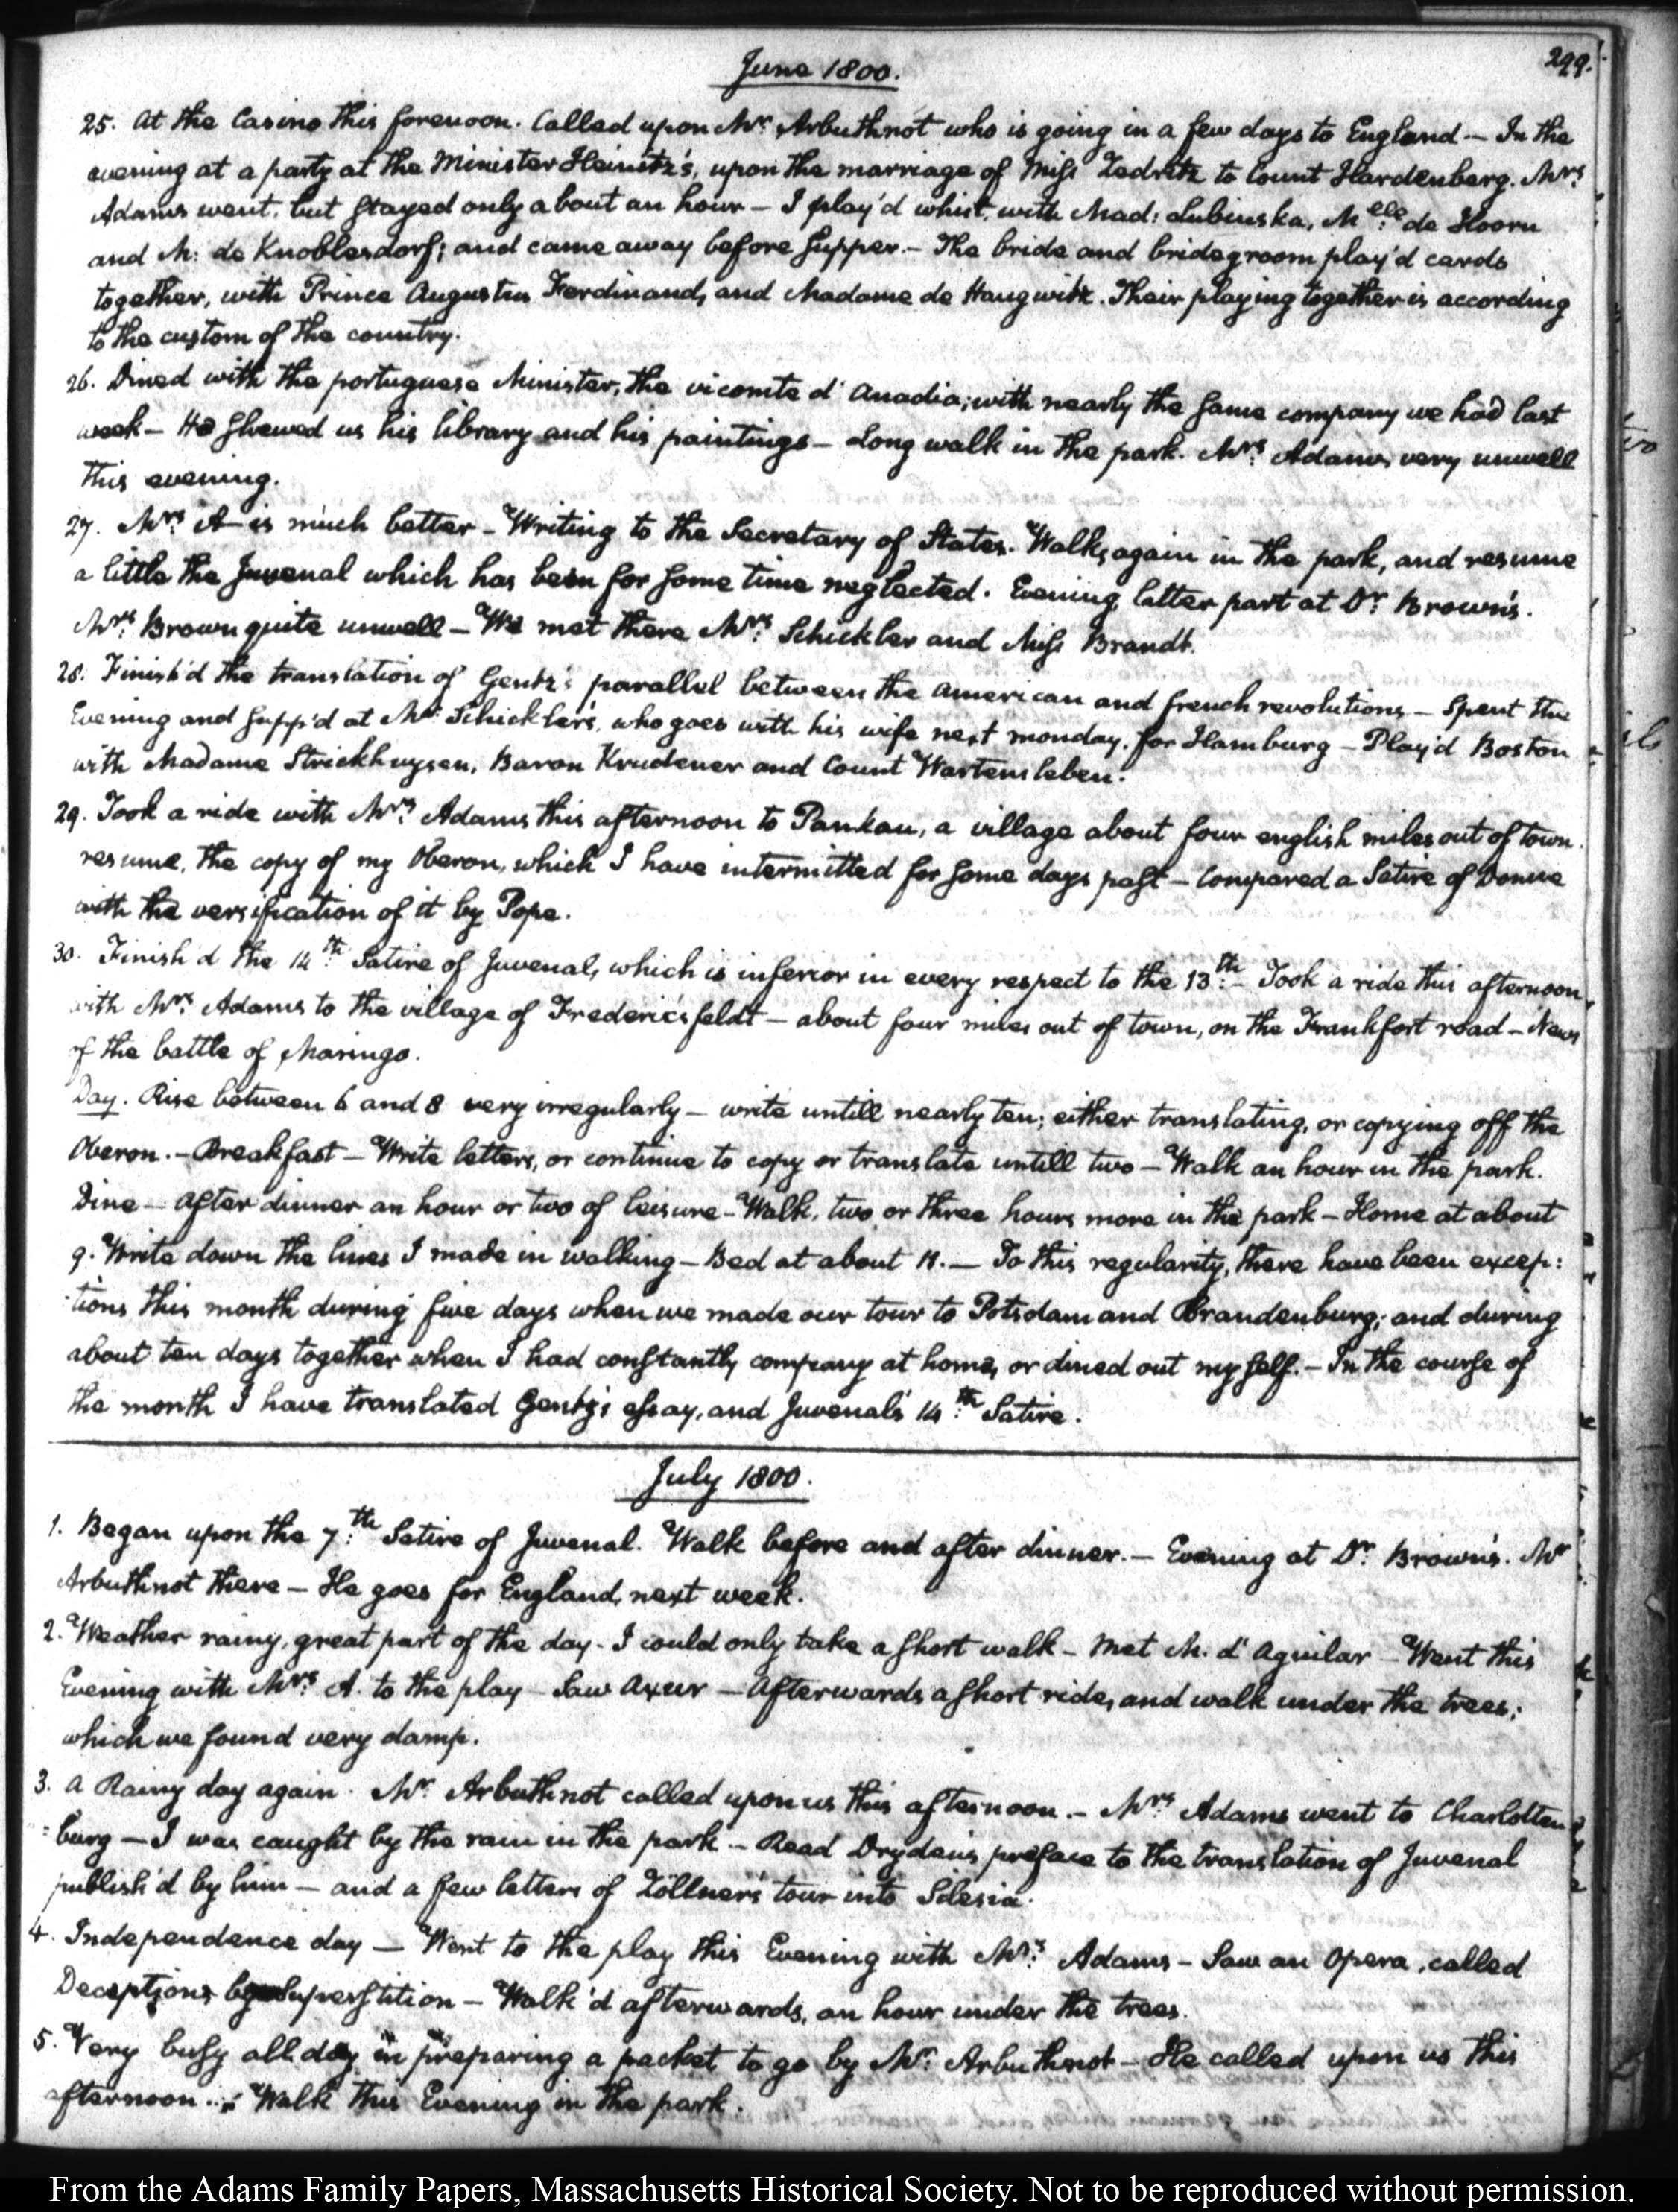 299.
June 1800.
25. At the Casino this forenoon. Called upon Mr. Arbuthnot who is going in a few days to England — In the
evening at a party at the Minister Heinitz's, upon the marriage of Miss Zedritz to Count Hardenberg. Mrs.
Adams went, but stayed only about an hour — I play'd whist, with Mad: Lubinska, Melle: de Hoorn
and M: de Knoblesdorf; and came away before supper. — The bride and bridegroom play'd cards
together, with Prince Augustus Ferdinand, and Madame de Haugwitz. Their playing together is according
to the custom of the country.
26. Dined with the portuguese Minister, the vicomte d'Anadia; with nearly the same company we had last
week — He shewed us his library and his paintings — Long walk in the park. Mrs: Adams very unwell
this evening.
27. Mrs: A— is much better — Writing to the Secretary of State. Walks again in the park, and resume
a little the Juvenal which has been for some time neglected. Evening, latter part at Dr: Brown's.
Mrs: Brown quite unwell — We met there Mrs: Schickler and Miss Brandt.
28. Finish'd the translation of Gentz's parallel between the American and french revolutions — Spent the
Evening and supp'd at Mr: Schickler's, who goes with his wife next monday, for Hamburg — Play'd Boston
with Madame Strickhuysen, Baron Krudener and Count Wartensleben.
29. Took a ride with Mrs: Adams this afternoon to Pankau, a village about four english miles out of town.
resume, the copy of my Oberon, which I have intermitted for some days past — Compared a Satire of Donne
with the versification of it by Pope.
30. Finish'd the 14th: Satire of Juvenal, which is inferior in every respect to the 13th: — Took a ride this afternoon,
with Mrs: Adams to the village of Frederic'sfeldt — about four miles out of town, on the Frankfort road — News
of the battle of Maringo.
Day. Rise between 6 and 8 very irregularly — write untill nearly ten; either translating, or copying off the
Oberon. — Breakfast — Write letters, or continue to copy or translate untill two — Walk an hour in the park.
Dine — after dinner an hour or two of leisure — Walk, two or three hours more in the park — Home at about
9. Write down the lines I made in walking — Bed at about 11. — To this regularity, there have been excep:
:tions this month during five days when we made our tour to Potsdam and Brandenburg; and during
about ten days together when I had constantly company at home, or dined out myself. — In the course of
the month I have translated Gentz's essay, and Juvenal's 14th: Satire.
July 1800.
1. Began upon the 7th: Satire of Juvenal. Walk before and after dinner. — Evening at Dr: Brown's. Mr
Arbuthnot there — He goes for England, next week.
2. Weather rainy, great part of the day — I could only take a short walk — Met M. d'Aguilar — Went this
Evening with Mrs: A. to the play — Saw Axur — Afterwards a short ride, and walk under the trees;
which we found very damp.
3. A Rainy day again. Mr. Arbuthnot called upon us this afternoon. — Mrs: Adams went to Charlotten
:burg — I was caught by the rain in the park — Read Dryden's preface to the translation of Juvenal
publish'd by him — and a few letters of Zöllner's tour into Silesia.
4. Independence day — Went to the play this Evening with Mrs: Adams — Saw an Opera, called
Deceptions by Superstition — Walk'd afterwards, an hour under the trees.
5. Very busy all day in preparing a packet to go by Mr: Arbuthnot — He called upon us this
afternoon. — Walk this Evening in the park.
From the Adams Family Papers, Massachusetts Historical Society. Not to be reproduced without permission.